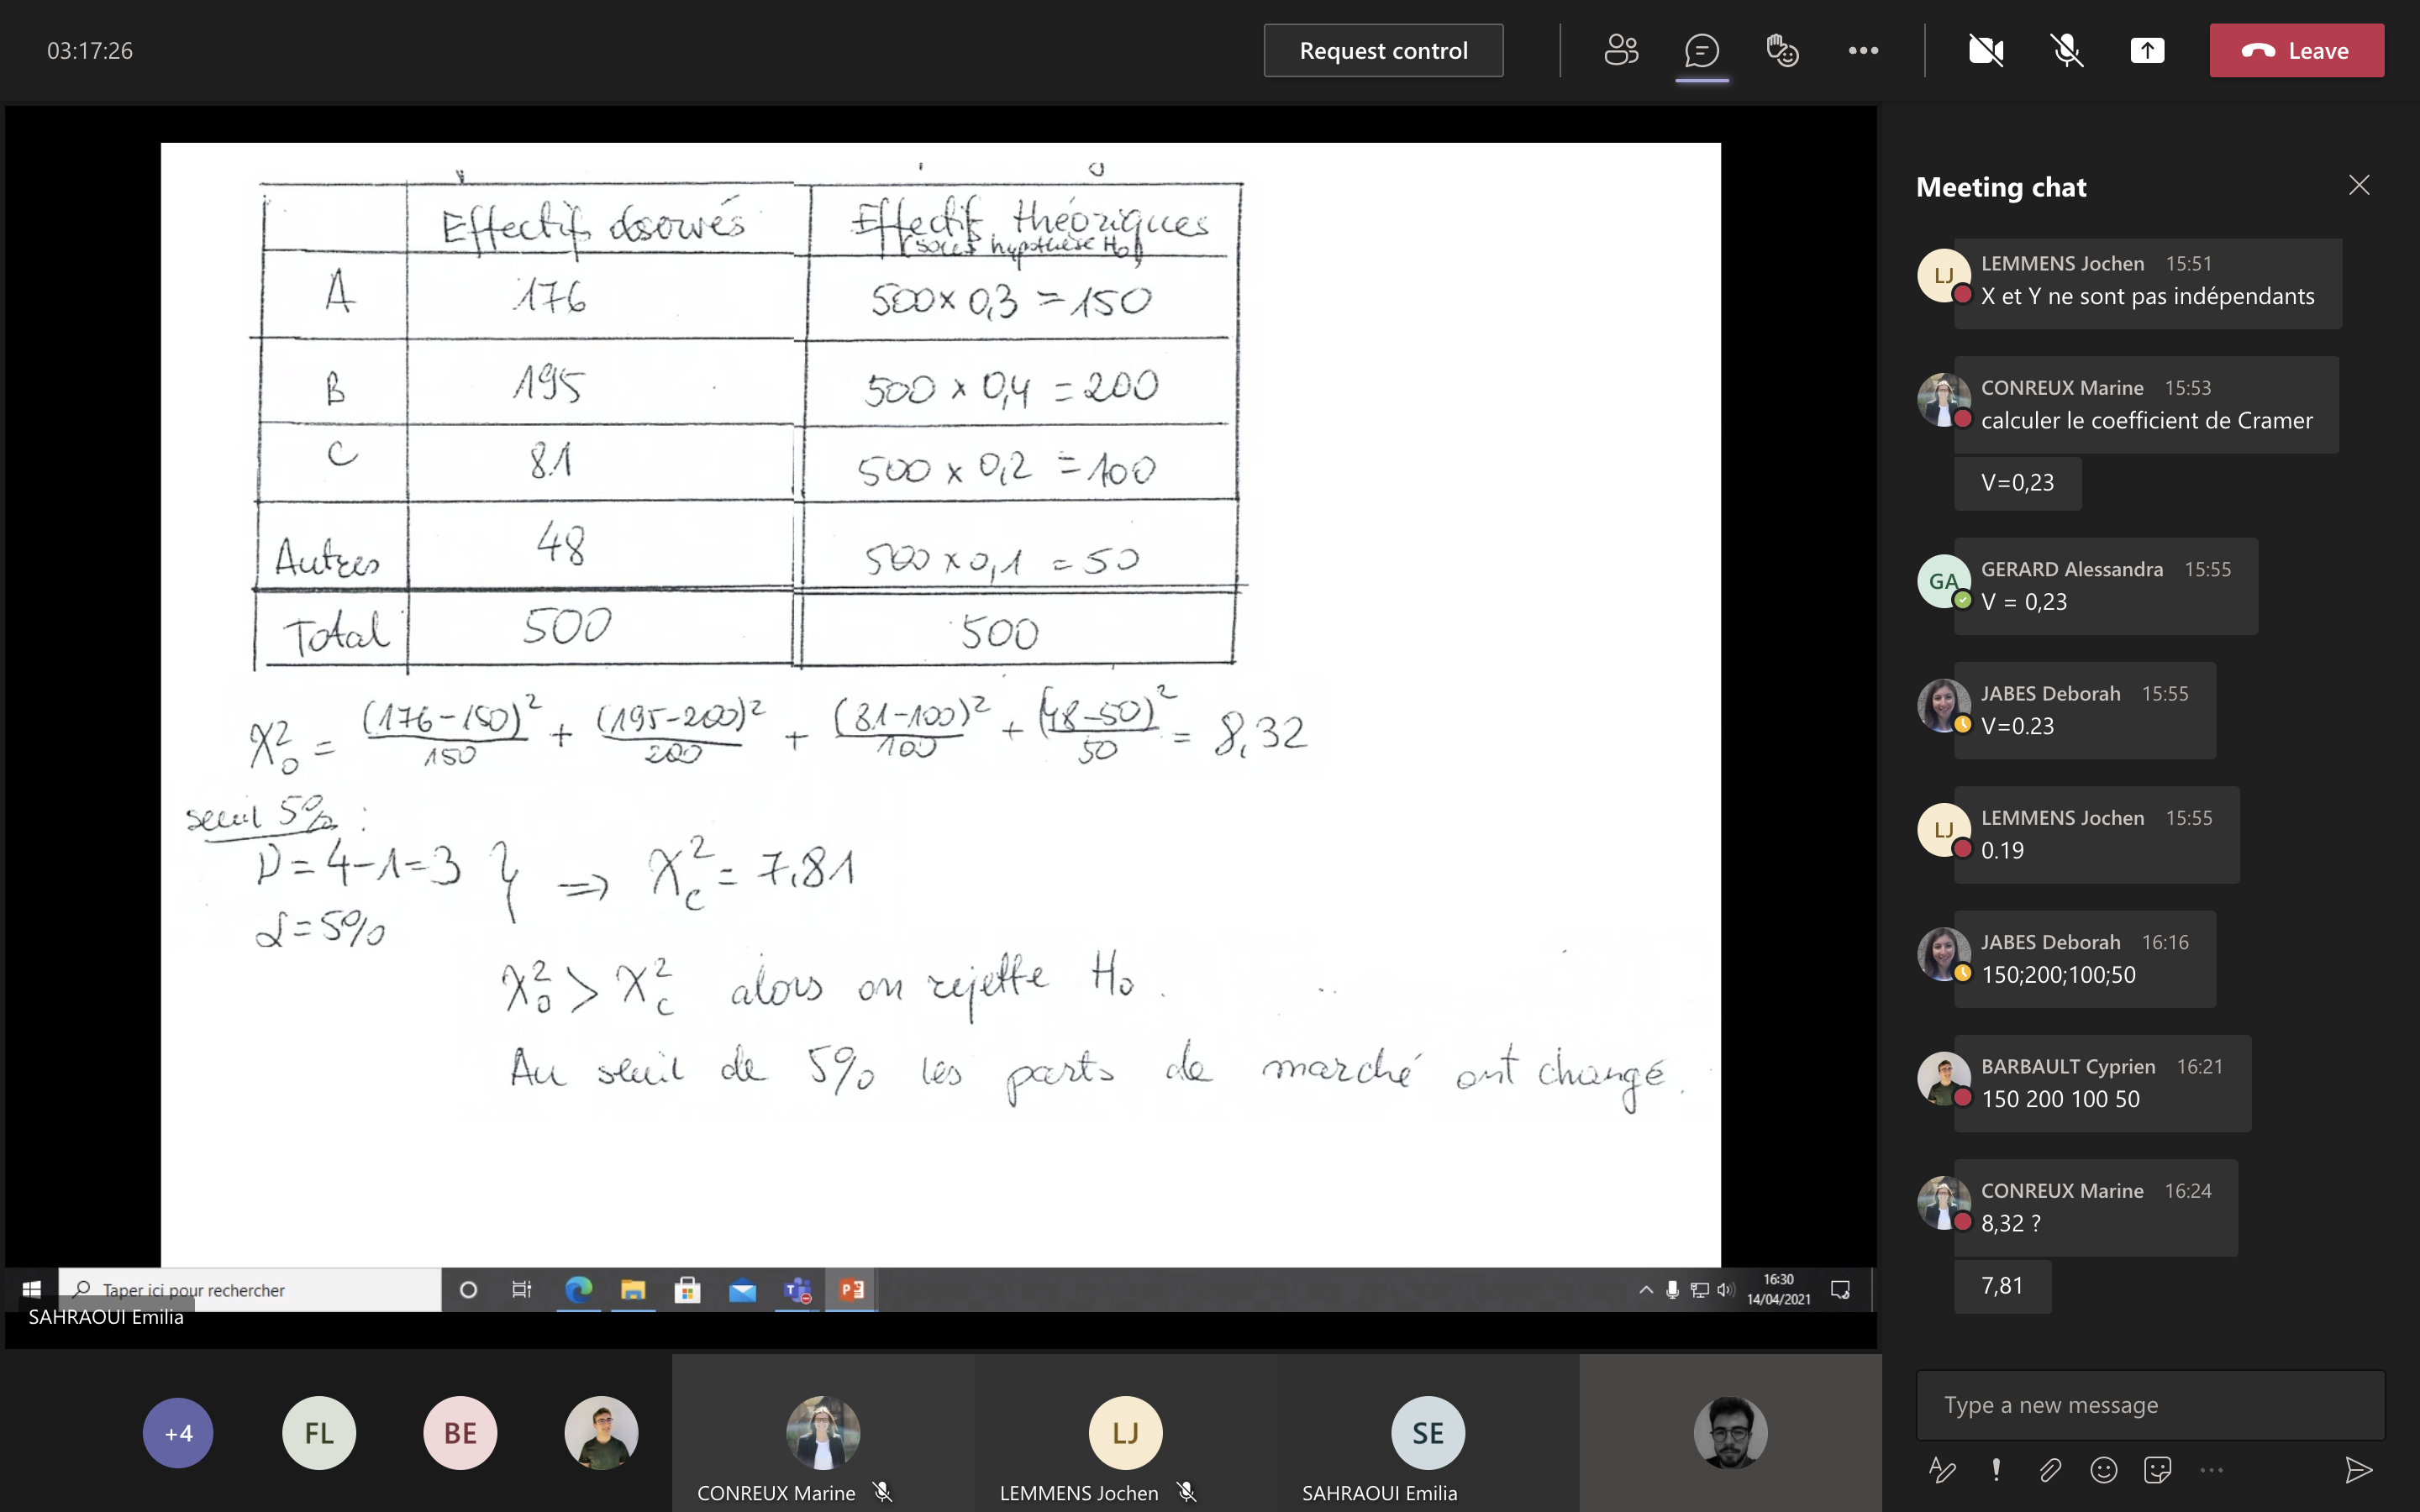 03:17:26
Request control
Leave
Effectifs observés
Effectifs théoriques
(sous hypothèse H0)
A 176 500 x 0,3 = 150
B 195 500 x 0,4 = 200
C 81 500 x 0,2 = 100
Autres 48 500 x 0,1 = 50
Total 500 500
χ²₀ = (176-150)²/150 + (195-200)²/200 + (81-100)²/100 + (48-50)²/50 = 8,32
seuil 5% :
ν = 4-1 = 3 } ⇒ χ²c = 7,81
α = 5%
χ²₀ > χ²c alors on rejette H0.
Au seuil de 5% les parts de marché ont changé.
Taper ici pour rechercher
16:30
14/04/2021
SAHRAOUI Emilia
+4
FL
BE
CONREUX Marine
LJ
LEMMENS Jochen
SE
SAHRAOUI Emilia
Meeting chat
LJ
LEMMENS Jochen 15:51
X et Y ne sont pas indépendants
CONREUX Marine 15:53
calculer le coefficient de Cramer
V=0,23
GA
GERARD Alessandra 15:55
V = 0,23
JABES Deborah 15:55
V=0.23
LJ
LEMMENS Jochen 15:55
0.19
JABES Deborah 16:16
150;200;100;50
BARBAULT Cyprien 16:21
150 200 100 50
CONREUX Marine 16:24
8,32 ?
7,81
Type a new message